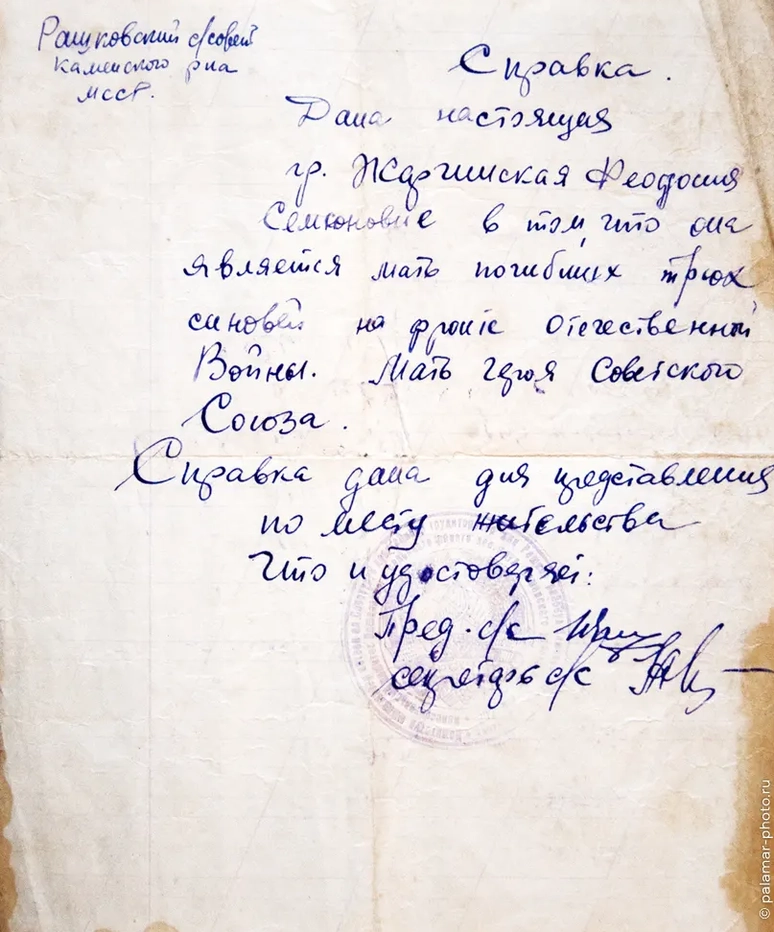 Рашковский с/совет
Каменского р-на
МССР.
Справка.
Дана настоящая
гр. Жарчинская Феодосия
Семионовне в том, что она
является мать погибших трьох
синовей на фронте Отечественной
Войны. Мать Героя Советского
Союза.
Справка дана для представления
по месту жительства
Что и удостоверяет:
Пред. с/с
секретарь с/с
© palamar-photo.ru